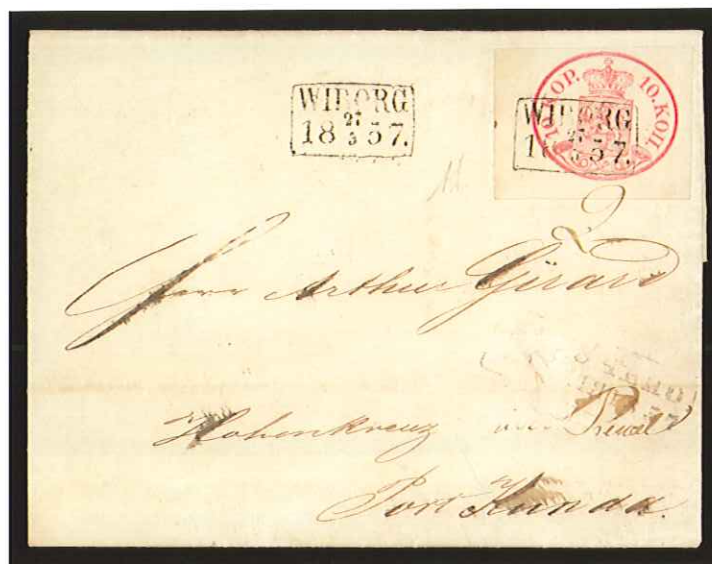 WIBORG
18 27/3 57.
10. KOP. 10. КОП.
WIBORG
27/3 57.
2
Herr Arthur Girard
Hohenkreuz via Reval
Port Kunda.